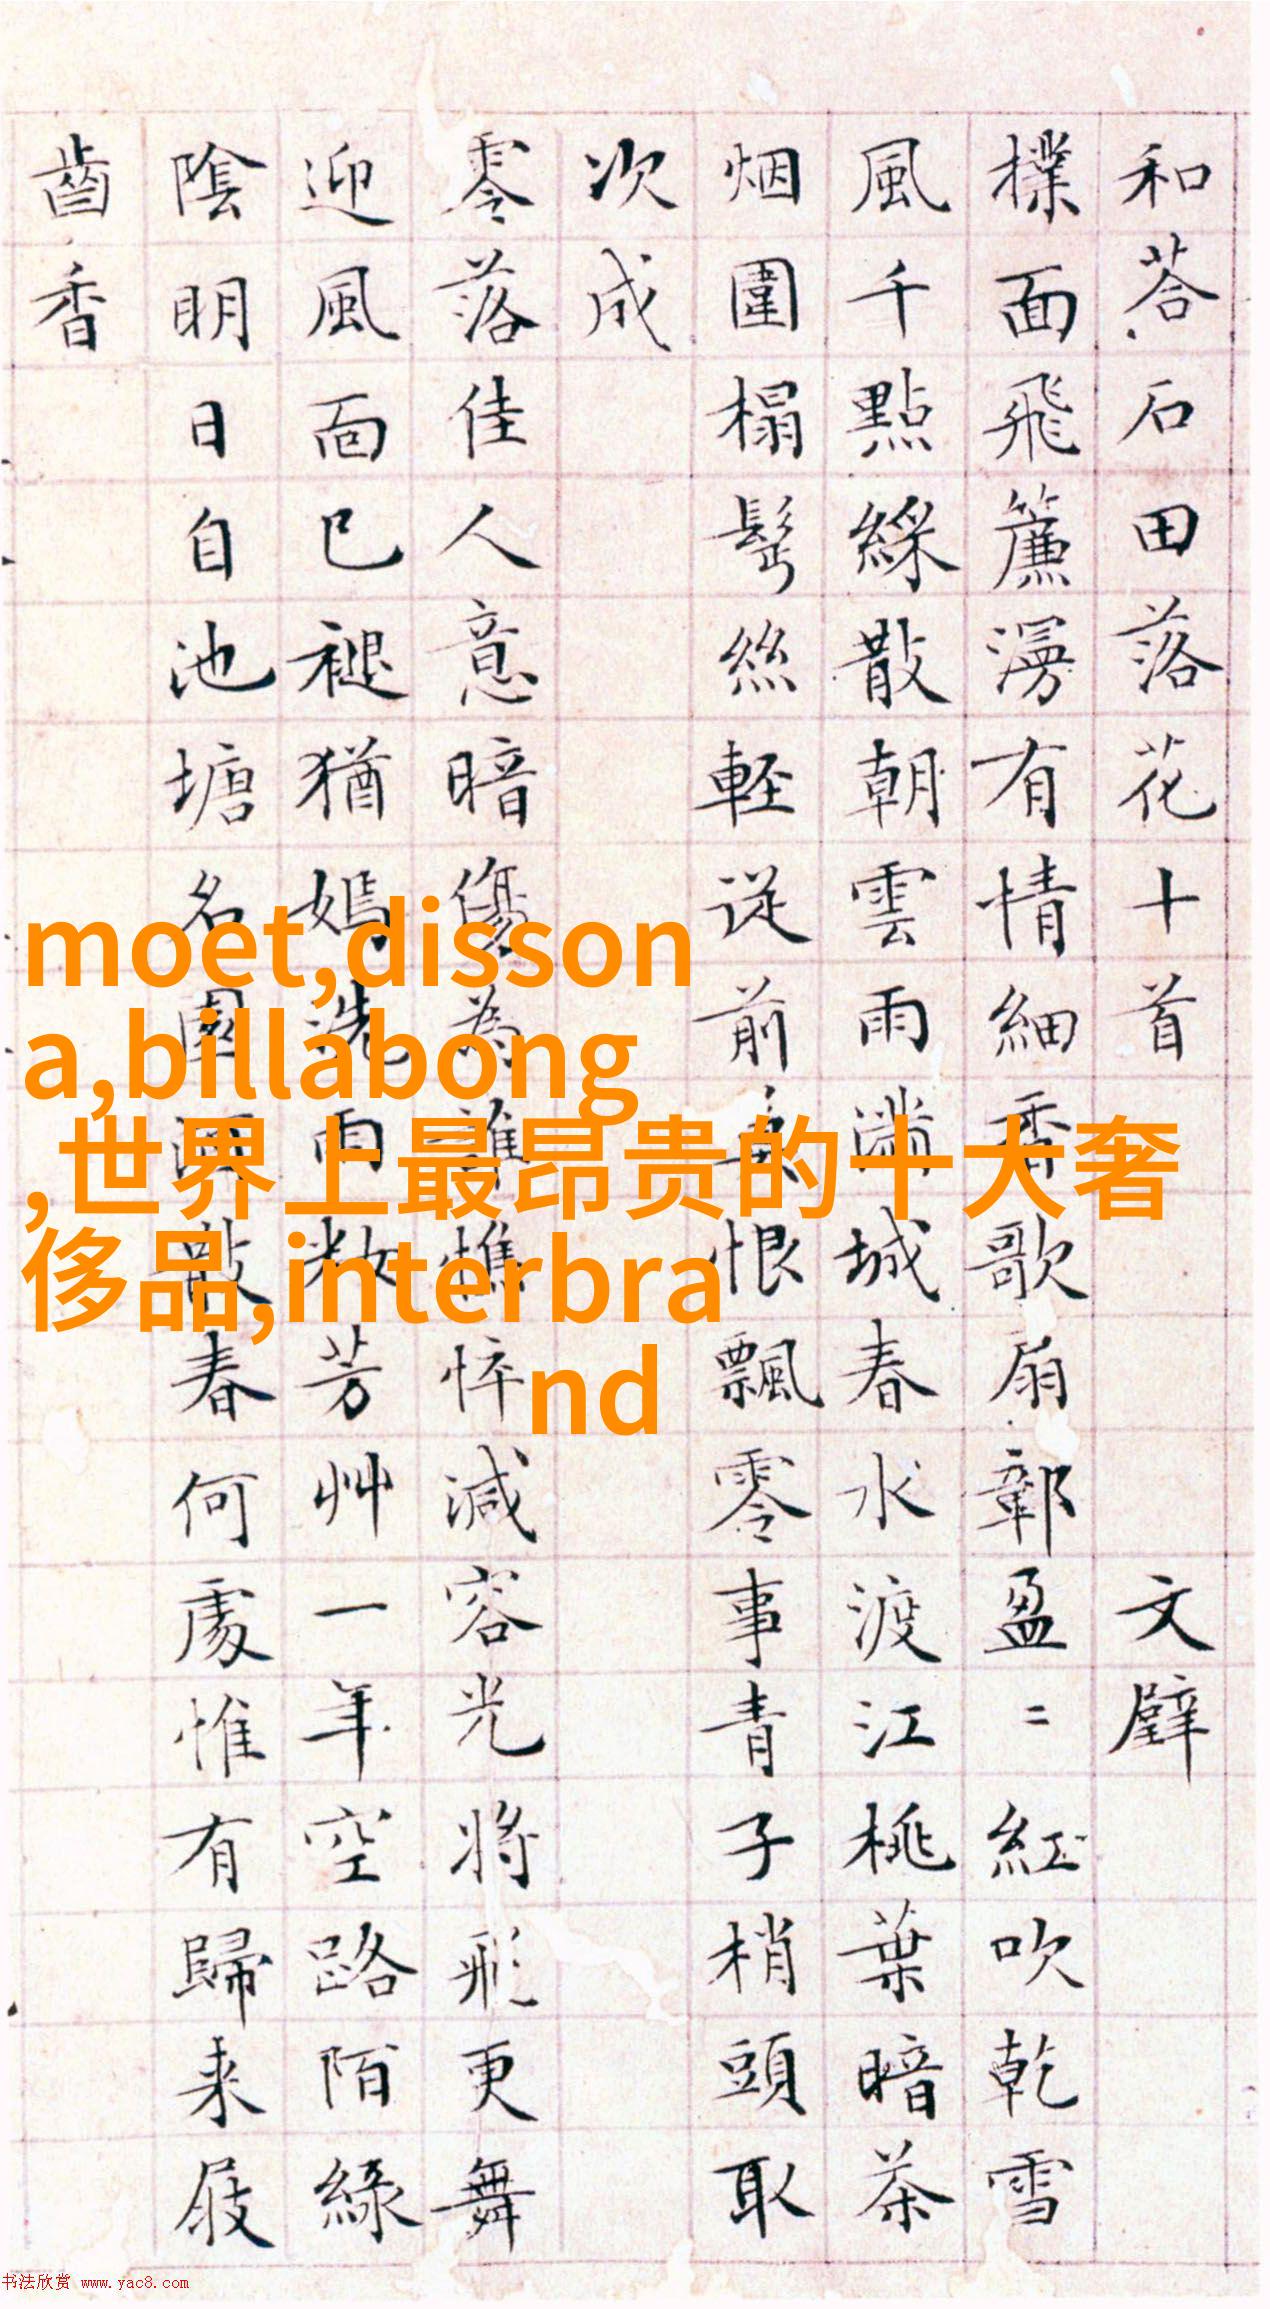 和荅石田落花十首 文壁
撲面飛簾漫有情細香歌扇鄣盈二紅吹乾雪
風千點綵散朝雲雨滿城春水渡江桃葉暗茶
烟圍榻髩絲輕從前莫恨飄零事青子梢頭取
次成
零落佳人意暗傷為誰憔悴減容光將飛更舞
迎風面已褪猶嫣洗雨粧芳艸一年空路陌綠
陰明日自池塘名園酒散春何處惟有歸来屐
齒香
moet,disson
a,billabong
,世界上最昂贵的十大奢
侈品,interbra
nd
书法欣赏 www.yac8.com